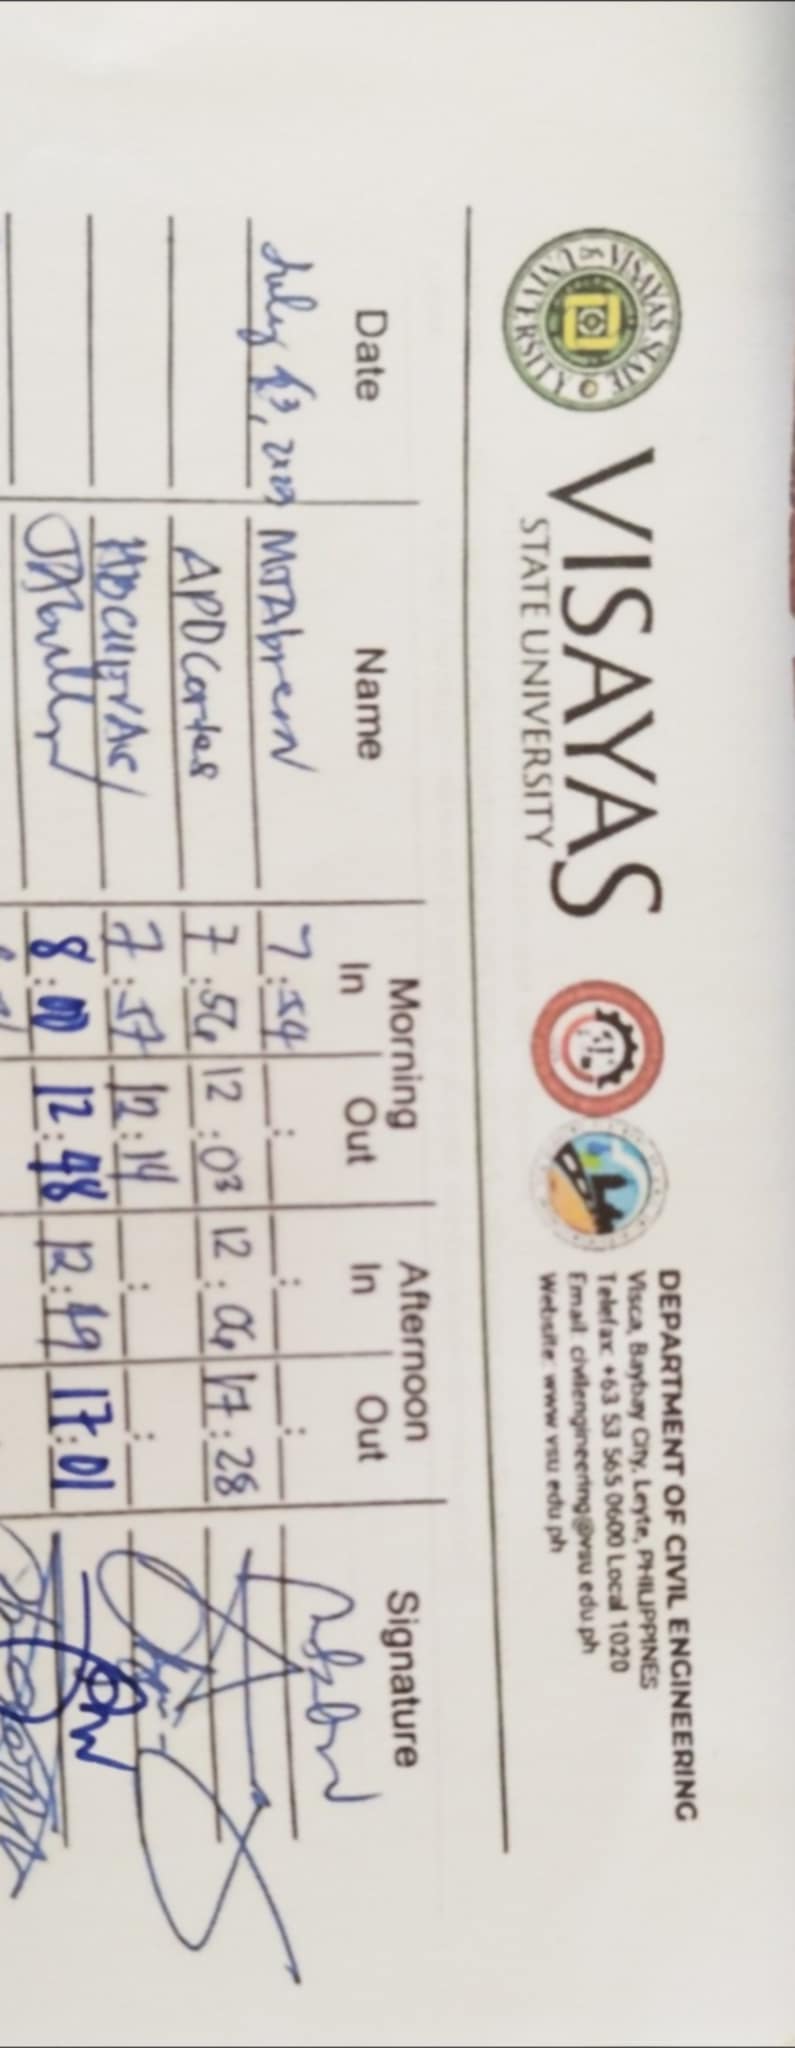 VISAYAS STATE UNIVERSITY
VISAYAS
STATE UNIVERSITY
DEPARTMENT OF CIVIL ENGINEERING
Visca, Baybay City, Leyte, PHILIPPINES
Telefax: +63 53 565 0600 Local 1020
Email: civilengineering@vsu.edu.ph
Website: www.vsu.edu.ph
Date Name Morning Afternoon Signature
In Out In Out
July 13, MJTAbrera 7:54 : : :
APDCortes 7:56 12:03 12:04 17:28
7:57 12:14 : :
8:00 12:48 12:49 17:01